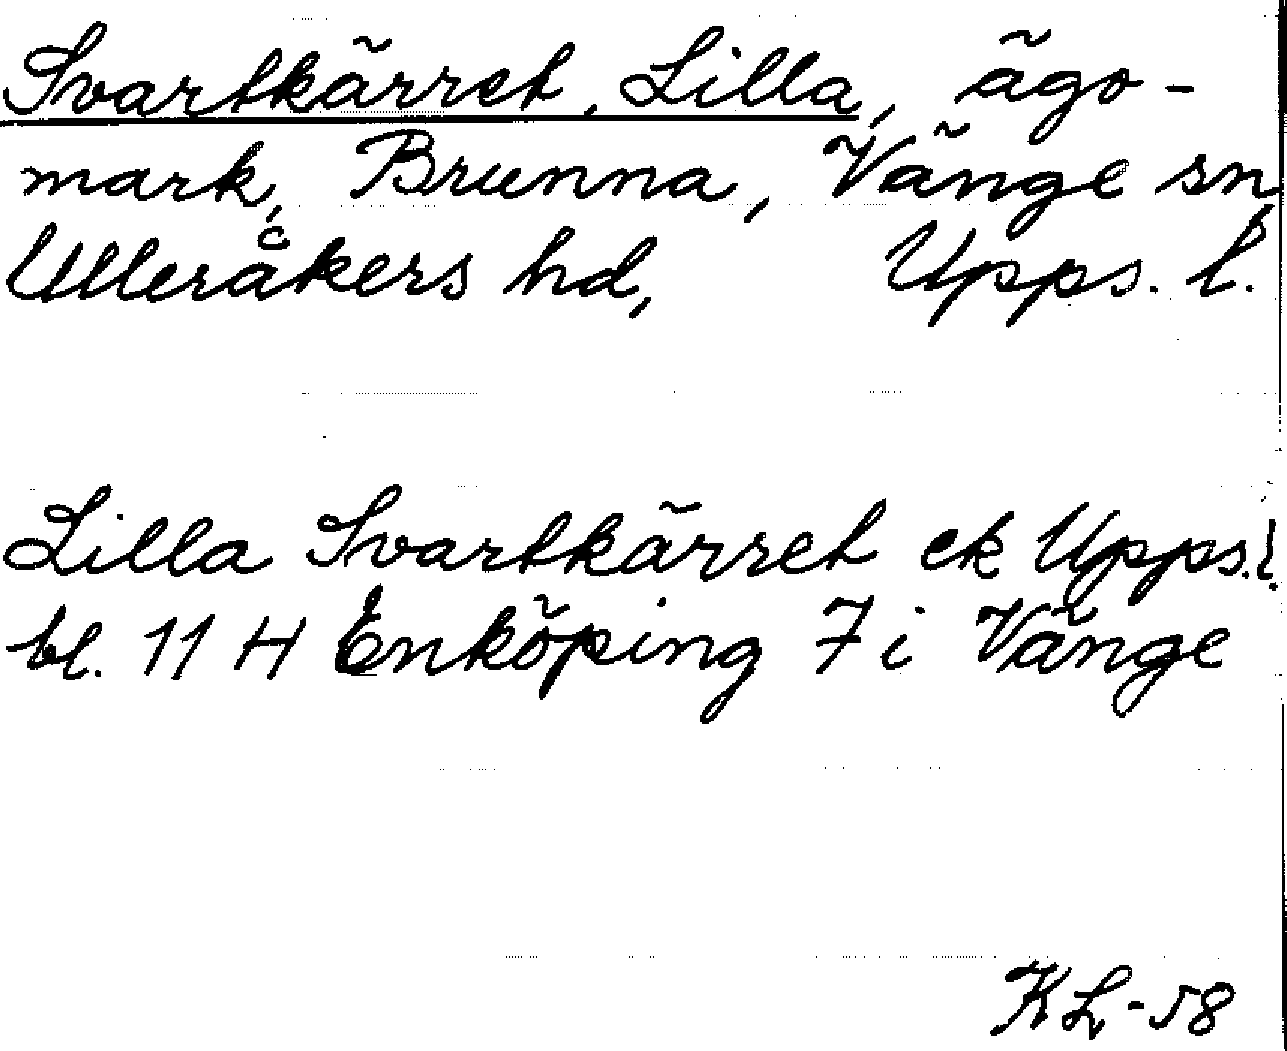 Svartkärret, Lilla, ägo-
mark, Brunna, Vänge sn
Ulleråkers hd, Upps. l.
Lilla Svartkärret ek Upps. l.
bl. 11 H Enköping 7 i Vänge
KL-58